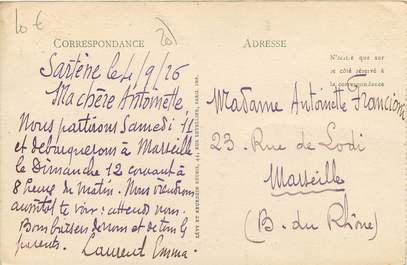 10 €
20
CORRESPONDANCE
Sartène le 4/9/26
Ma chère Antoinette
Nous partirons Samedi 11
et debarquerons à Marseille
le Dimanche 12 courant à
8 heure du matin. Nous viendrons
aussitot te voir: attends nous.
Bons baisers de nous et de tous les
parents.
Laurent Emma.
LÉVY ET NEURDEIN RÉUNIS, 44, RUE LETELLIER, PARIS. IMP.
ADRESSE
N'écrire que sur
le côté réservé à
la correspondance
Madame Antoinette Francioni
23. Rue de Lodi
Marseille
(B. du Rhône)